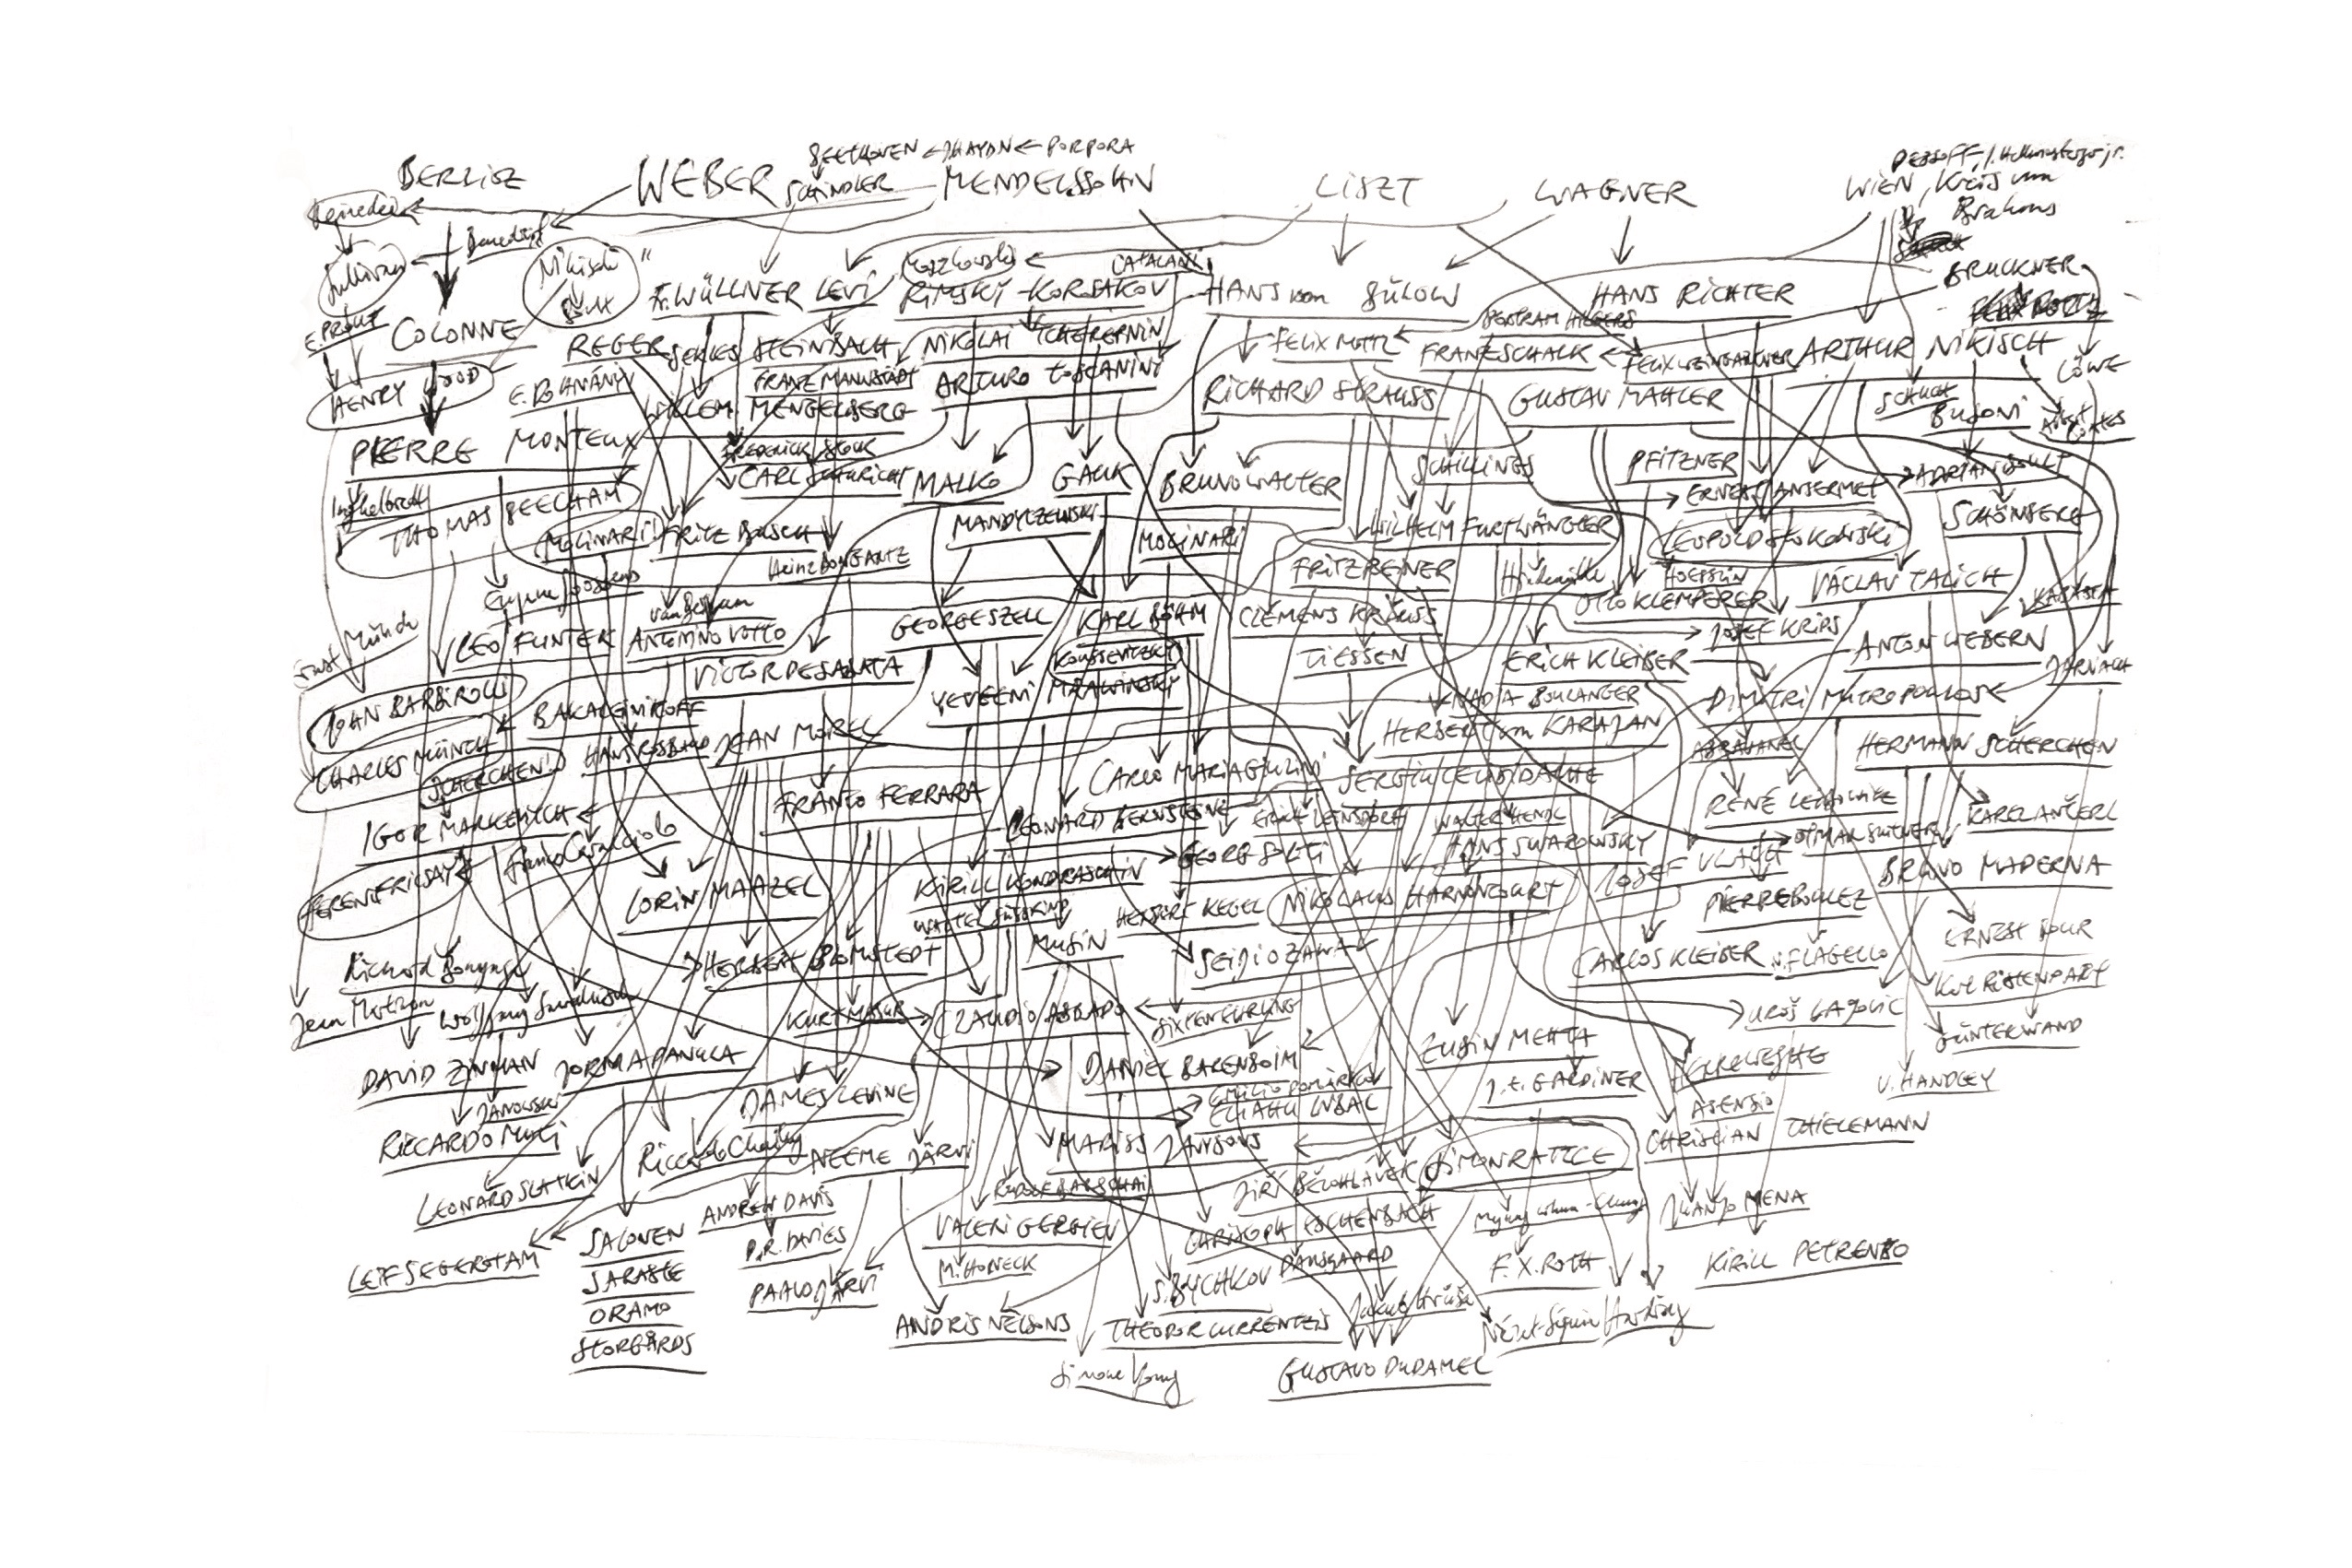 BEETHOVEN ← HAYDN ← PORPORA
BERLIOZ
WEBER
SCHINDLER
MENDELSSOHN
LISZT
WAGNER
WIEN, Kreis um
Brahms
DESSOFF, J. Hellmesberger jr.
Reinecke
Benedict
Sullivan
Nikisch
Moszkowski
CATALANI
BRUCKNER
E. PROUT
COLONNE
Fr. WÜLLNER
LEVI
RIMSKY-KORSAKOV
HANS von BÜLOW
HANS RICHTER
BERTRAM HILGERS
REGER
SEKLES
STEINBACH
NIKOLAI TCHEREPNIN
FELIX MOTTL
FRANZ SCHALK
FELIX WEINGARTNER
ARTHUR NIKISCH
LÖWE
HENRY WOOD
E. DOHNÁNYI
FRANZ MANNSTÄDT
ARTURO TOSCANINI
RICHARD STRAUSS
GUSTAV MAHLER
SCHUCH
BUSONI
Albert Coates
WILLEM MENGELBERG
PIERRE MONTEUX
FREDERICK STOCK
CARL SCHURICHT
MALKO
GAUK
BRUNO WALTER
SCHILLINGS
PFITZNER
ERNEST ANSERMET
ADRIAN BOULT
Inghelbrecht
THOMAS BEECHAM
MOLINARI
FRITZ BUSCH
MANDYCZEWSKI
MOLINARI
WILHELM FURTWÄNGLER
LEOPOLD STOKOWSKI
SCHÖNBERG
Heinz BONGARTZ
Eugene Goossens
FRITZ REINER
Hindemith
HOESSLIN
VÁCLAV TALICH
GEORGE SZELL
KARL BÖHM
CLEMENS KRAUSS
OTTO KLEMPERER
LEO FUNTEK
ANTONINO VOTTO
JOSEF KRIPS
ANTON WEBERN
Ernst Münch
VICTOR DE SABATA
KOUSSEVITZKY
TIESSEN
ERICH KLEIBER
JARNACH
JOHN BARBIROLLI
YEVGENI MRAWINSKY
NADIA BOULANGER
DIMITRI MITROPOULOS
BAKALEINIKOFF
HERBERT von KARAJAN
CHARLES MÜNCH
HANS ROSBAUD
JEAN MOREL
ABRAVANEL
HERMANN SCHERCHEN
SCHERCHEN!
CARLO MARIA GIULINI
SERGIU CELIBIDACHE
FRANCO FERRARA
RENÉ LEIBOWITZ
IGOR MARKEVITCH
LEONARD BERNSTEIN
ERICH LEINSDORF
WALTER HENDL
KAREL ANČERL
Franco Caracciolo
GEORG SOLTI
HANS SWAROWSKY
JOSEF VLACH
OTMAR SUITNER
BRUNO MADERNA
FERENC FRICSAY
LORIN MAAZEL
KIRILL KONDRASCHIN
WALTER SÜSSKIND
HERBERT KEGEL
NIKOLAUS HARNONCOURT
PIERRE BOULEZ
MUSIN
ERNEST BOUR
Richard Bonynge
HERBERT BLOMSTEDT
SEIJI OZAWA
CARLOS KLEIBER
N. FLAGELLO
Karl RISTENPART
Jean Martinon
Wolfgang Sawallisch
KURT MASUR
CLAUDIO ABBADO
SIXTEN EHRLING
UROŠ LAJOVIC
GÜNTER WAND
DAVID ZINMAN
JORMA PANULA
DANIEL BARENBOIM
ZUBIN MEHTA
HERREWEGHE
JANOWSKI
JAMES LEVINE
ELIAHU INBAL
J. E. GARDINER
V. HANDLEY
ASENSIO
RICCARDO MUTI
Riccardo Chailly
NEEME JÄRVI
MARISS JANSONS
CHRISTIAN THIELEMANN
LEONARD SLATKIN
RUDOLF BARSCHAI
JIŘÍ BĚLOHLÁVEK
SIMON RATTLE
ANDREW DAVIS
VALERI GERGIEV
CHRISTOPH ESCHENBACH
Myung-whun Chung
JUANJO MENA
LEIF SEGERSTAM
SALONEN
D. R. DAVIES
M. HONECK
DAUSGAARD
F. X. ROTH
KIRILL PETRENKO
SARASTE
PAAVO JÄRVI
S. BYCHKOV
ORAMO
ANDRIS NELSONS
THEODOR CURRENTZIS
Jakub Hrůša
Nézet-Séguin
Harding
STORGÅRDS
Simone Young
GUSTAVO DUDAMEL